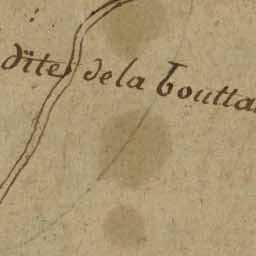 dïtes dela boutta